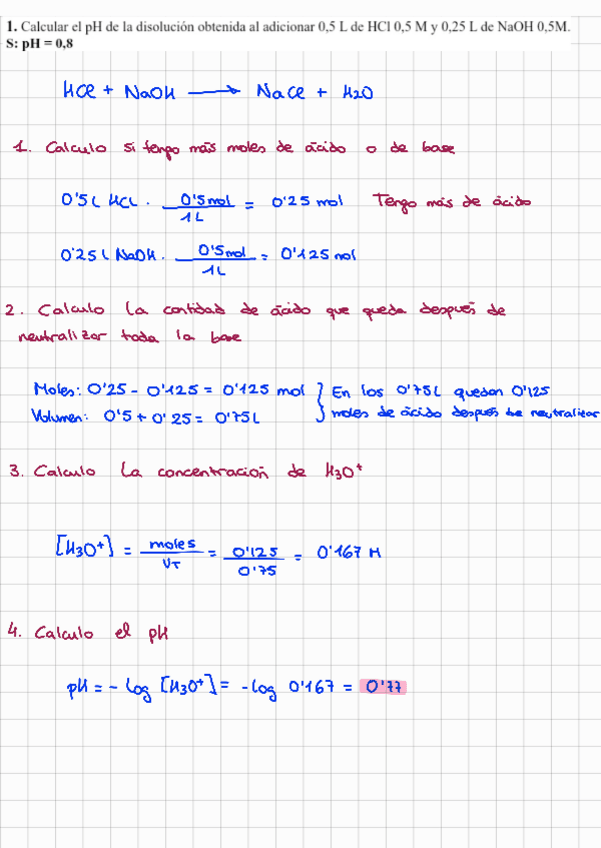 1. Calcular el pH de la disolución obtenida al adicionar 0,5 L de HCl 0,5 M y 0,25 L de NaOH 0,5M.
S: pH = 0,8
HCl + NaOH → NaCl + H2O
1. Calculo si tengo más moles de ácido o de base
0'5L HCl · 0'5mol / 1L = 0'25 mol Tengo más de ácido
0'25L NaOH · 0'5mol / 1L = 0'125 mol
2. Calculo la cantidad de ácido que queda después de
neutralizar toda la base
Moles: 0'25 - 0'125 = 0'125 mol } En los 0'75L quedan 0'125
Volumen: 0'5 + 0'25 = 0'75L } moles de ácido después de neutralizar
3. Calculo la concentración de H3O+
[H3O+] = moles / VT = 0'125 / 0'75 = 0'167 M
4. Calculo el pH
pH = - log [H3O+] = - log 0'167 = 0'77